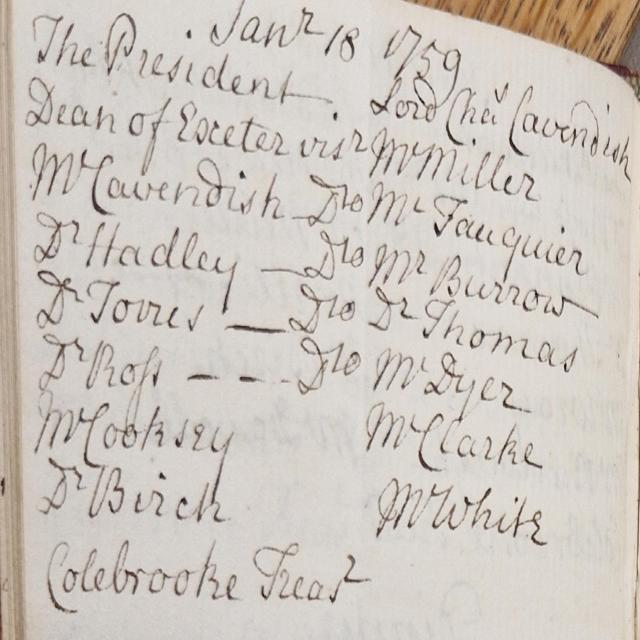 Janr 18 1759
The President
Dean of Exceter visr
Mr Cavendish Dto
Dr Hadley — Dto
Dr Torres — Dto
Dr Ross - - - Dto
Mr Cooksey
Dr Birch
Colebrooke Treasr
Lord Chas Cavendish
Mr Miller
Mr Fauquier
Mr Burrow
Dr Thomas
Mr Dyer
Mr Clarke
Mr White